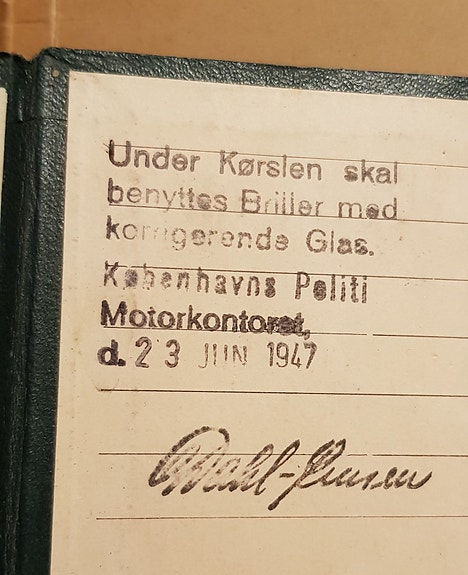 Under Kørslen skal
benyttes Briller med
korrigerende Glas.
Københavns Politi
Motorkontoret,
d. 23 JUN 1947
Dahl-Jensen